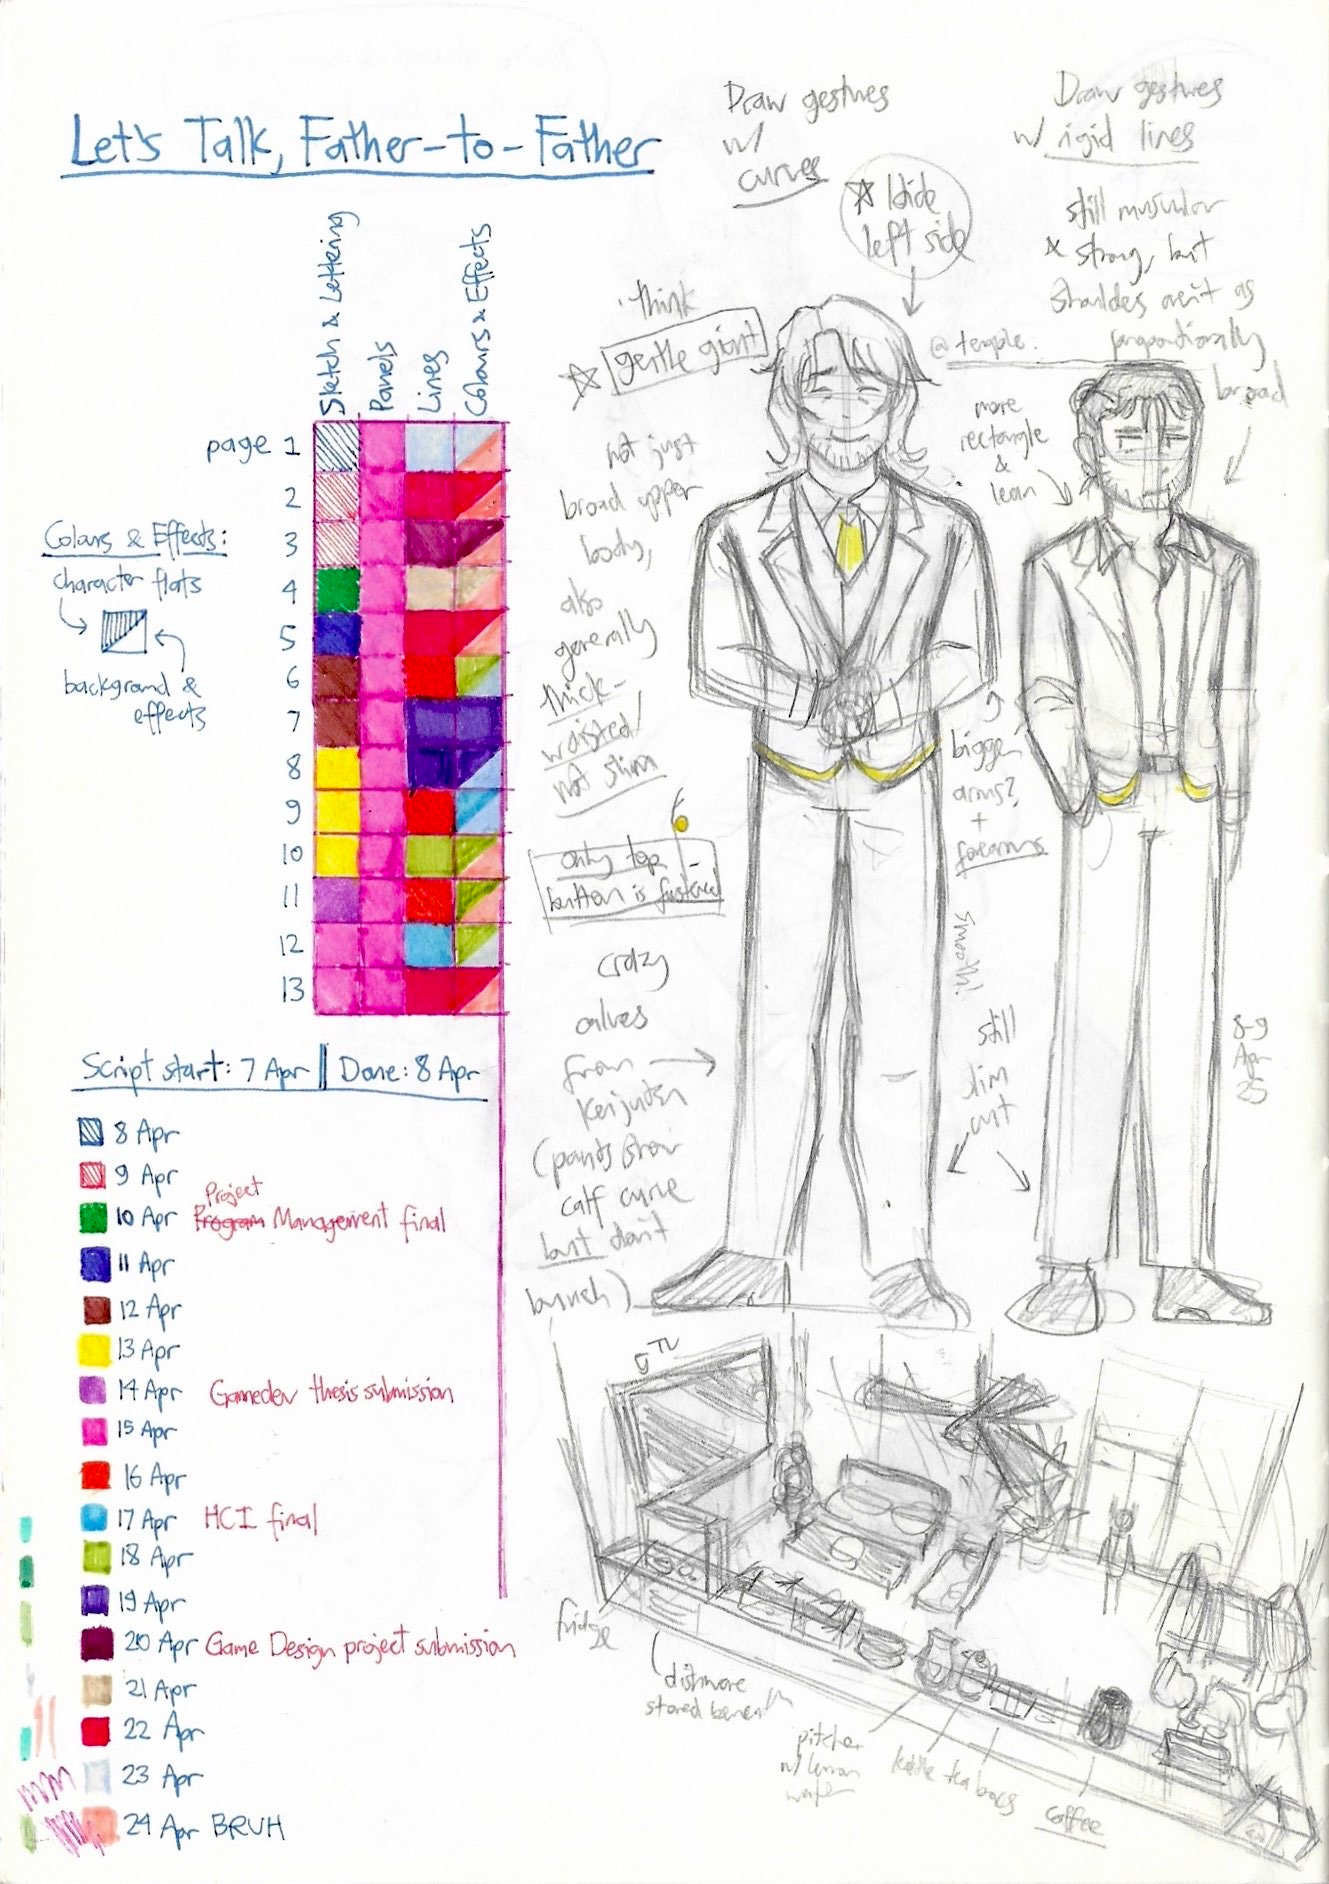 Let's Talk, Father-to-Father
Sketch & Lettering
Panels
Lines
Colours & Effects
page 1
2
3
4
5
6
7
8
9
10
11
12
13
Colours & Effects:
character flats
background &
effects
Script start: 7 Apr || Done: 8 Apr
8 Apr
9 Apr
Project
10 Apr Program Management final
11 Apr
12 Apr
13 Apr
14 Apr Gamedev thesis submission
15 Apr
16 Apr
17 Apr HCI final
18 Apr
19 Apr
20 Apr Game Design project submission
21 Apr
22 Apr
23 Apr
24 Apr BRUH
Draw gestures
w/
curves
Hide
left side
think
gentle giant
not just
broad upper
body,
also
generally
thick-
waisted/
not slim
only top
button is fastened
crazy
calves
from
(pants show
calf curve
but don't
bunch)
Draw gestures
w/ rigid lines
still muscular
& strong, but
shoulders aren't as
proportionally
broad
@ temple.
more
rectangle
&
lean
bigger
arms?
+
forearms
smooth!
still
slim
cut
8-9
Apr
25
TV
fridge
dishware
stored beneath
pitcher
w/ lemon
water
kettle
tea bags
coffee